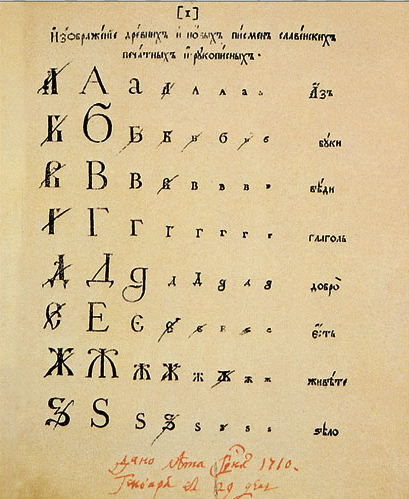 [1]
Изображенїе древнихъ и новыхъ писменъ славенскихъ
печатныхъ и рукописныхъ.
А А а а а а а а Азъ
Б Б Б Б б Б б б буки
В В В В в в в в вѣди
Г Г Г Г г г г г глаголь
Д Д д д д д д д добро
Є Е є є е е е е єсть
Ж Ж ж ж ж ж ж ж живѣте
Ѕ Ѕ ѕ ѕ ѕ ѕ ѕ ѕ ѕѣло
дано лѣта 1710.
Генваря 29 дня